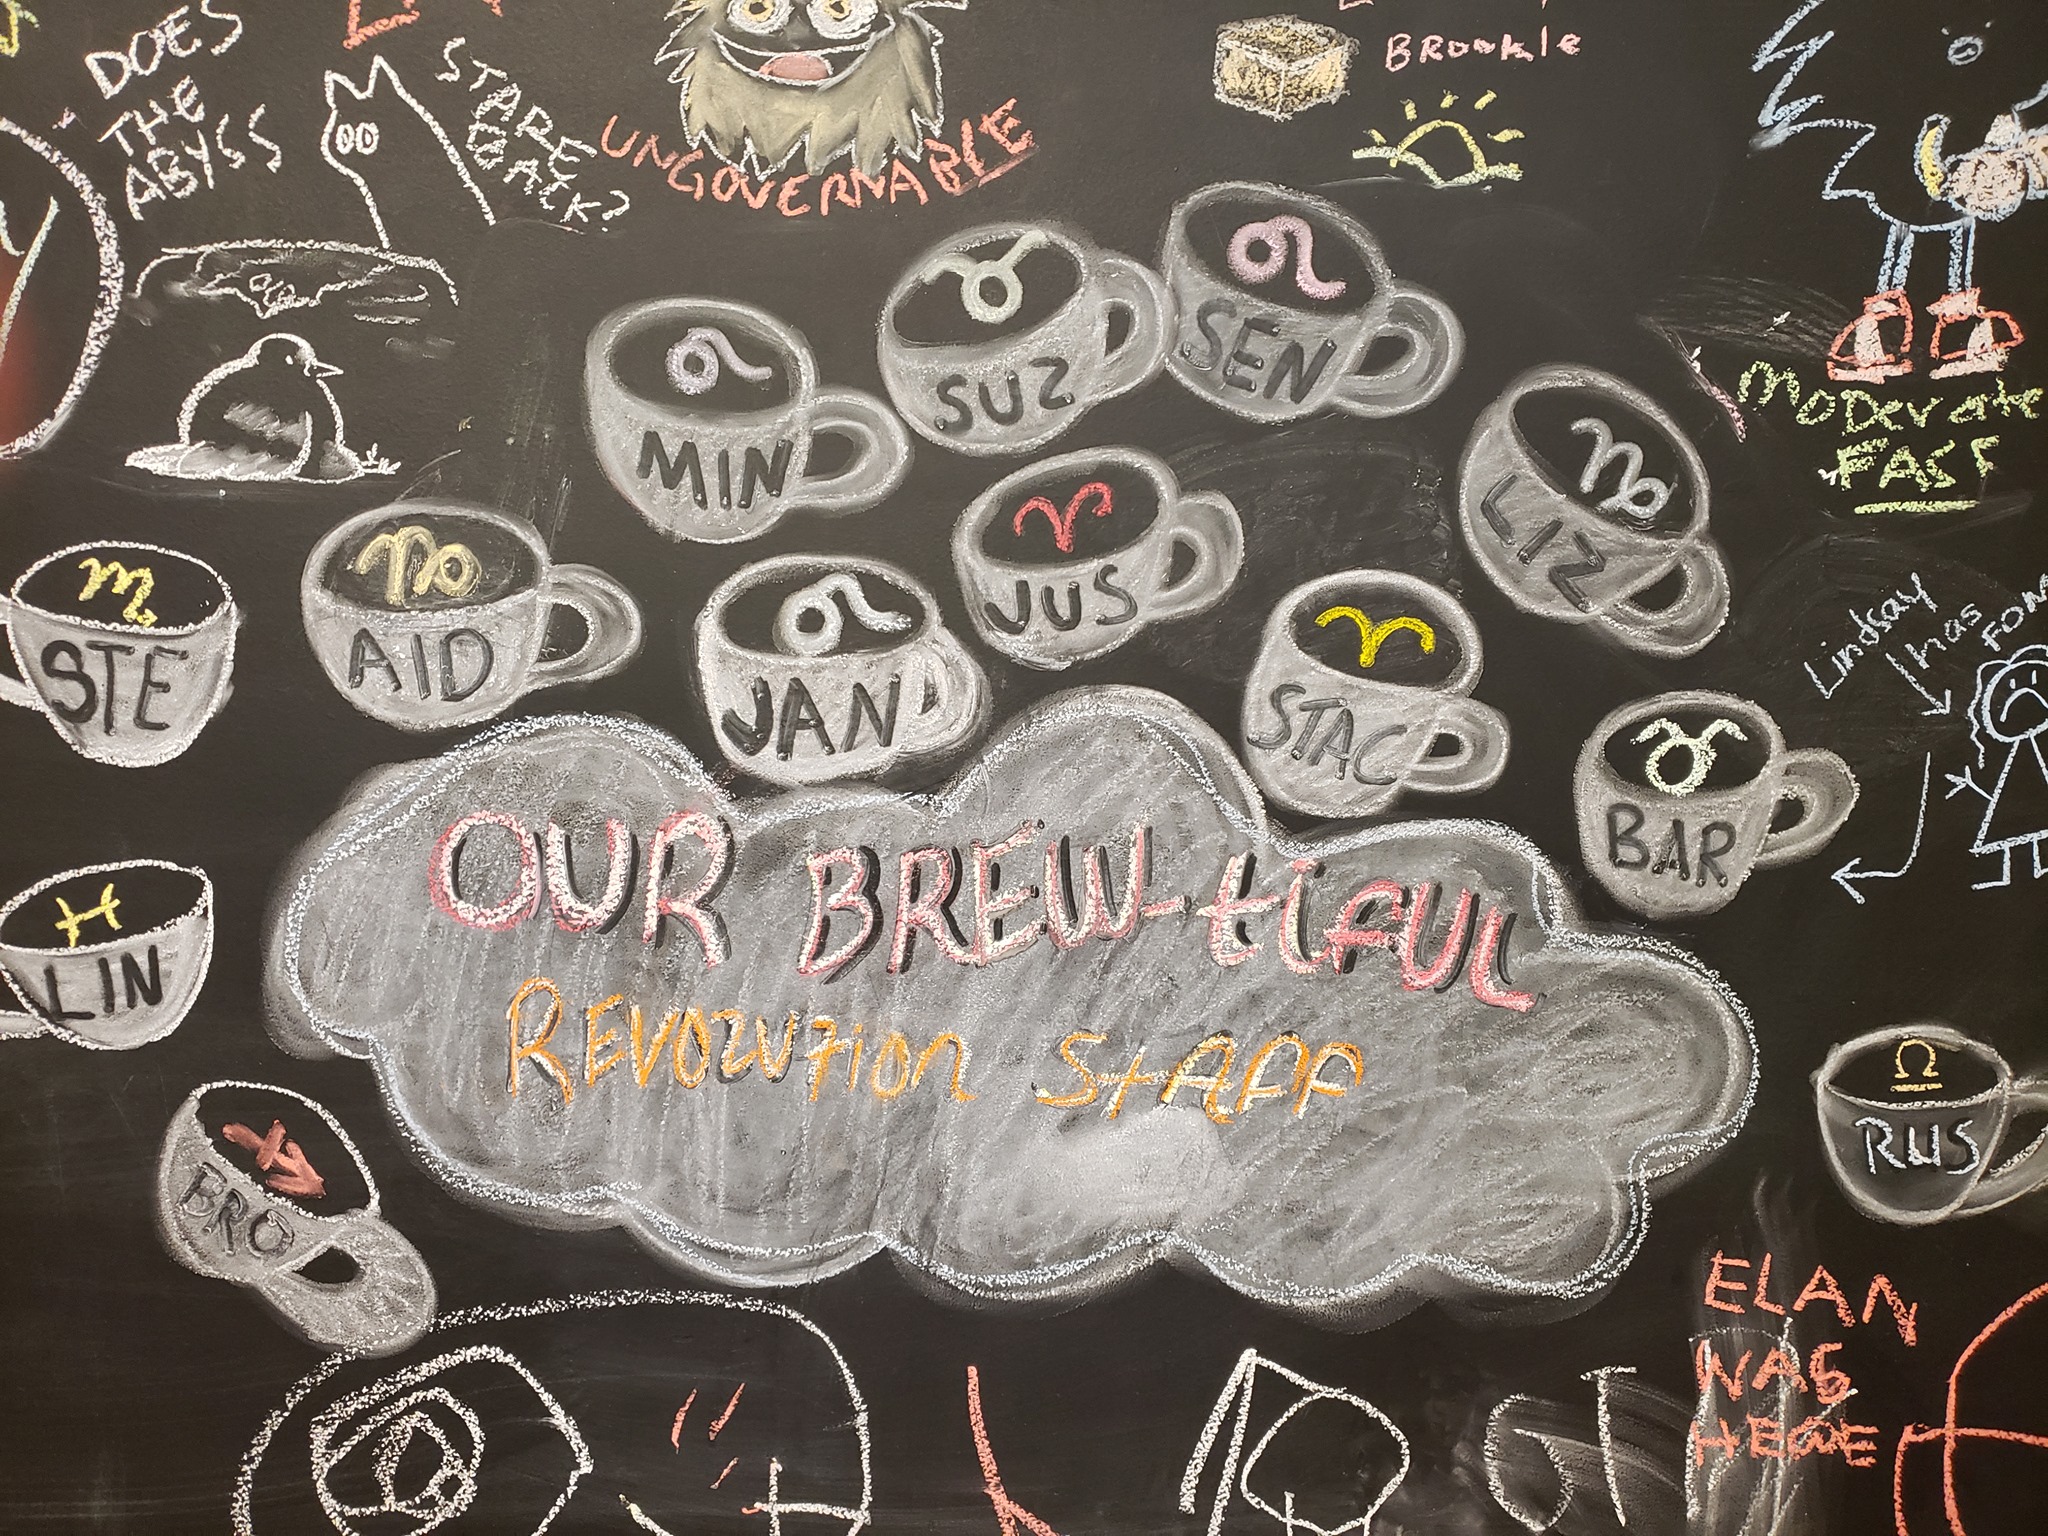 DOES
THE
ABYSS
STARE
BACK?
UNGOVERNABLE
BROOKIE
MODERATE
FAST
MIN
SUZ
SEN
LIZ
STE
AID
JAN
JUS
STAC
BAR
LIN
BRO
RUS
Lindsay
has
OUR BREW-tiFUL
REVOLUTION STAFF
ELAN
WAS
HERE